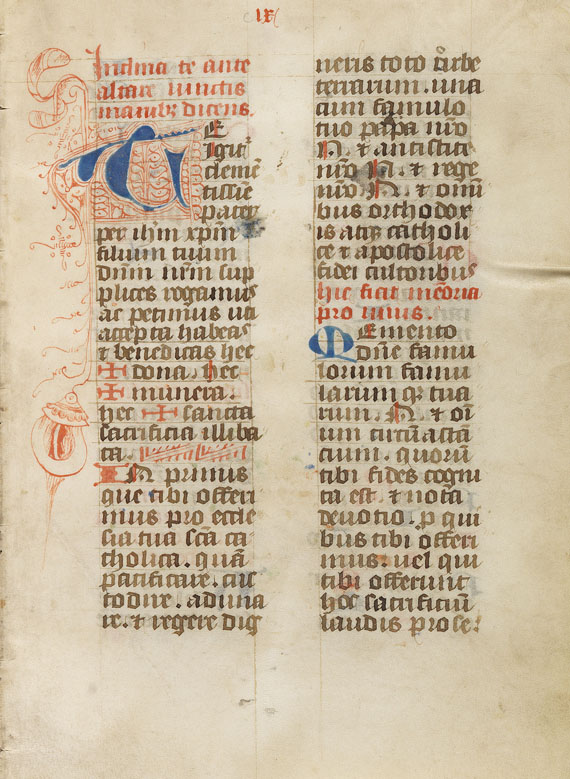 ix
Inclina te ante
altare iunctis
manibꝫ dicens.
TE
Igit᷑
clemē
tissīe
pater
per ihm̄ xp̄m
filium tuum
dn̄m nr̄m sup
plices rogamus
ac petimus uti
accepta habeas
⁊ benedicas hec
✠ dona. hec
✠ munera.
hec ✠ sancta
sacrificia illiba
ta.
IN primis
que tibi offeri
mus pro eccle
sia tua sc̄a ca
tholica. quā
pacificare. cus
todire. aduna
re. ⁊ regere dig
neris toto orbe
terrarum. una
cum famulo
tuo papa nr̄o
N. ⁊ antistite
nr̄o N. ⁊ rege
nr̄o N. ⁊ omī
bus orthodox
is atqꝫ catholi
ce ⁊ apostolice
fidei cultoribus
hic ficit mēoria
pro uiuis.
Memento
dn̄e famu
lorum famu
larum qꝫ tua
rum. N. ⁊ oī
um circūastā
cium. quorū
tibi fides cogni
ta est. ⁊ nota
deuotio. ꝓ qui
bus tibi offeri
mus. uel qui
tibi offerunt
hoc sacrificiū
laudis pro se: